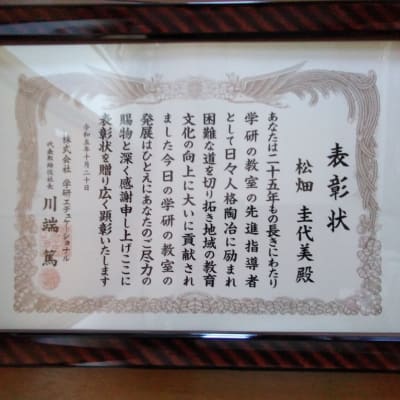 表彰状
松畑 圭代美殿
あなたは二十五年もの長きにわたり
学研の教室の先進指導者
として日々人格陶冶に励まれ
困難な道を切り拓き地域の教育
文化の向上に大いに貢献され
ました今日の学研の教室の
発展はひとえにあなたのご尽力の
賜物と深く感謝申し上げここに
表彰状を贈り広く顕彰いたします
令和五年十月二十日
株式会社 学研エデュケーショナル
代表取締役社長
川端 篤